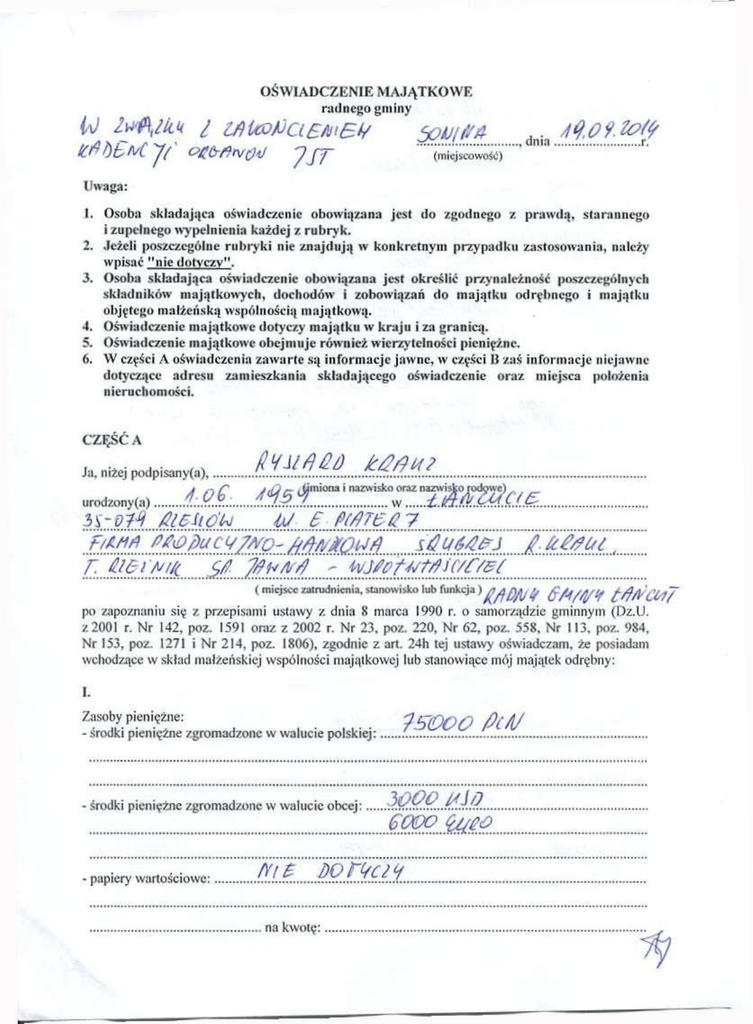 OŚWIADCZENIE MAJĄTKOWE
radnego gminy
W ZWIĄZKU Z ZAKOŃCZENIEM SONINA, dnia 19.09.2014 r.
KADENCJI ORGANÓW JST (miejscowość)
Uwaga:
1. Osoba składająca oświadczenie obowiązana jest do zgodnego z prawdą, starannego
i zupełnego wypełnienia każdej z rubryk.
2. Jeżeli poszczególne rubryki nie znajdują w konkretnym przypadku zastosowania, należy
wpisać "nie dotyczy".
3. Osoba składająca oświadczenie obowiązana jest określić przynależność poszczególnych
składników majątkowych, dochodów i zobowiązań do majątku odrębnego i majątku
objętego małżeńską wspólnością majątkową.
4. Oświadczenie majątkowe dotyczy majątku w kraju i za granicą.
5. Oświadczenie majątkowe obejmuje również wierzytelności pieniężne.
6. W części A oświadczenia zawarte są informacje jawne, w części B zaś informacje niejawne
dotyczące adresu zamieszkania składającego oświadczenie oraz miejsca położenia
nieruchomości.
CZĘŚĆ A
Ja, niżej podpisany(a), RYSZARD KRAUZ
(imiona i nazwisko oraz nazwisko rodowe)
urodzony(a) 1.06. 1959 w ŁAŃCUCIE
35-079 RZESZÓW UL. E. PLATER 7
FIRMA PRODUCYJNO-HANDLOWA R. KRAUZ,
T. RZEŹNIK SP. JAWNA - WSPÓŁWŁAŚCICIEL
( miejsce zatrudnienia, stanowisko lub funkcja ) RADNY GMINY ŁAŃCUT
po zapoznaniu się z przepisami ustawy z dnia 8 marca 1990 r. o samorządzie gminnym (Dz.U.
z 2001 r. Nr 142, poz. 1591 oraz z 2002 r. Nr 23, poz. 220, Nr 62, poz. 558, Nr 113, poz. 984,
Nr 153, poz. 1271 i Nr 214, poz. 1806), zgodnie z art. 24h tej ustawy oświadczam, że posiadam
wchodzące w skład małżeńskiej wspólności majątkowej lub stanowiące mój majątek odrębny:
I.
Zasoby pieniężne:
- środki pieniężne zgromadzone w walucie polskiej: 75000 PLN
- środki pieniężne zgromadzone w walucie obcej: 3000 USD
6000 EURO
- papiery wartościowe: NIE DOTYCZY
na kwotę: